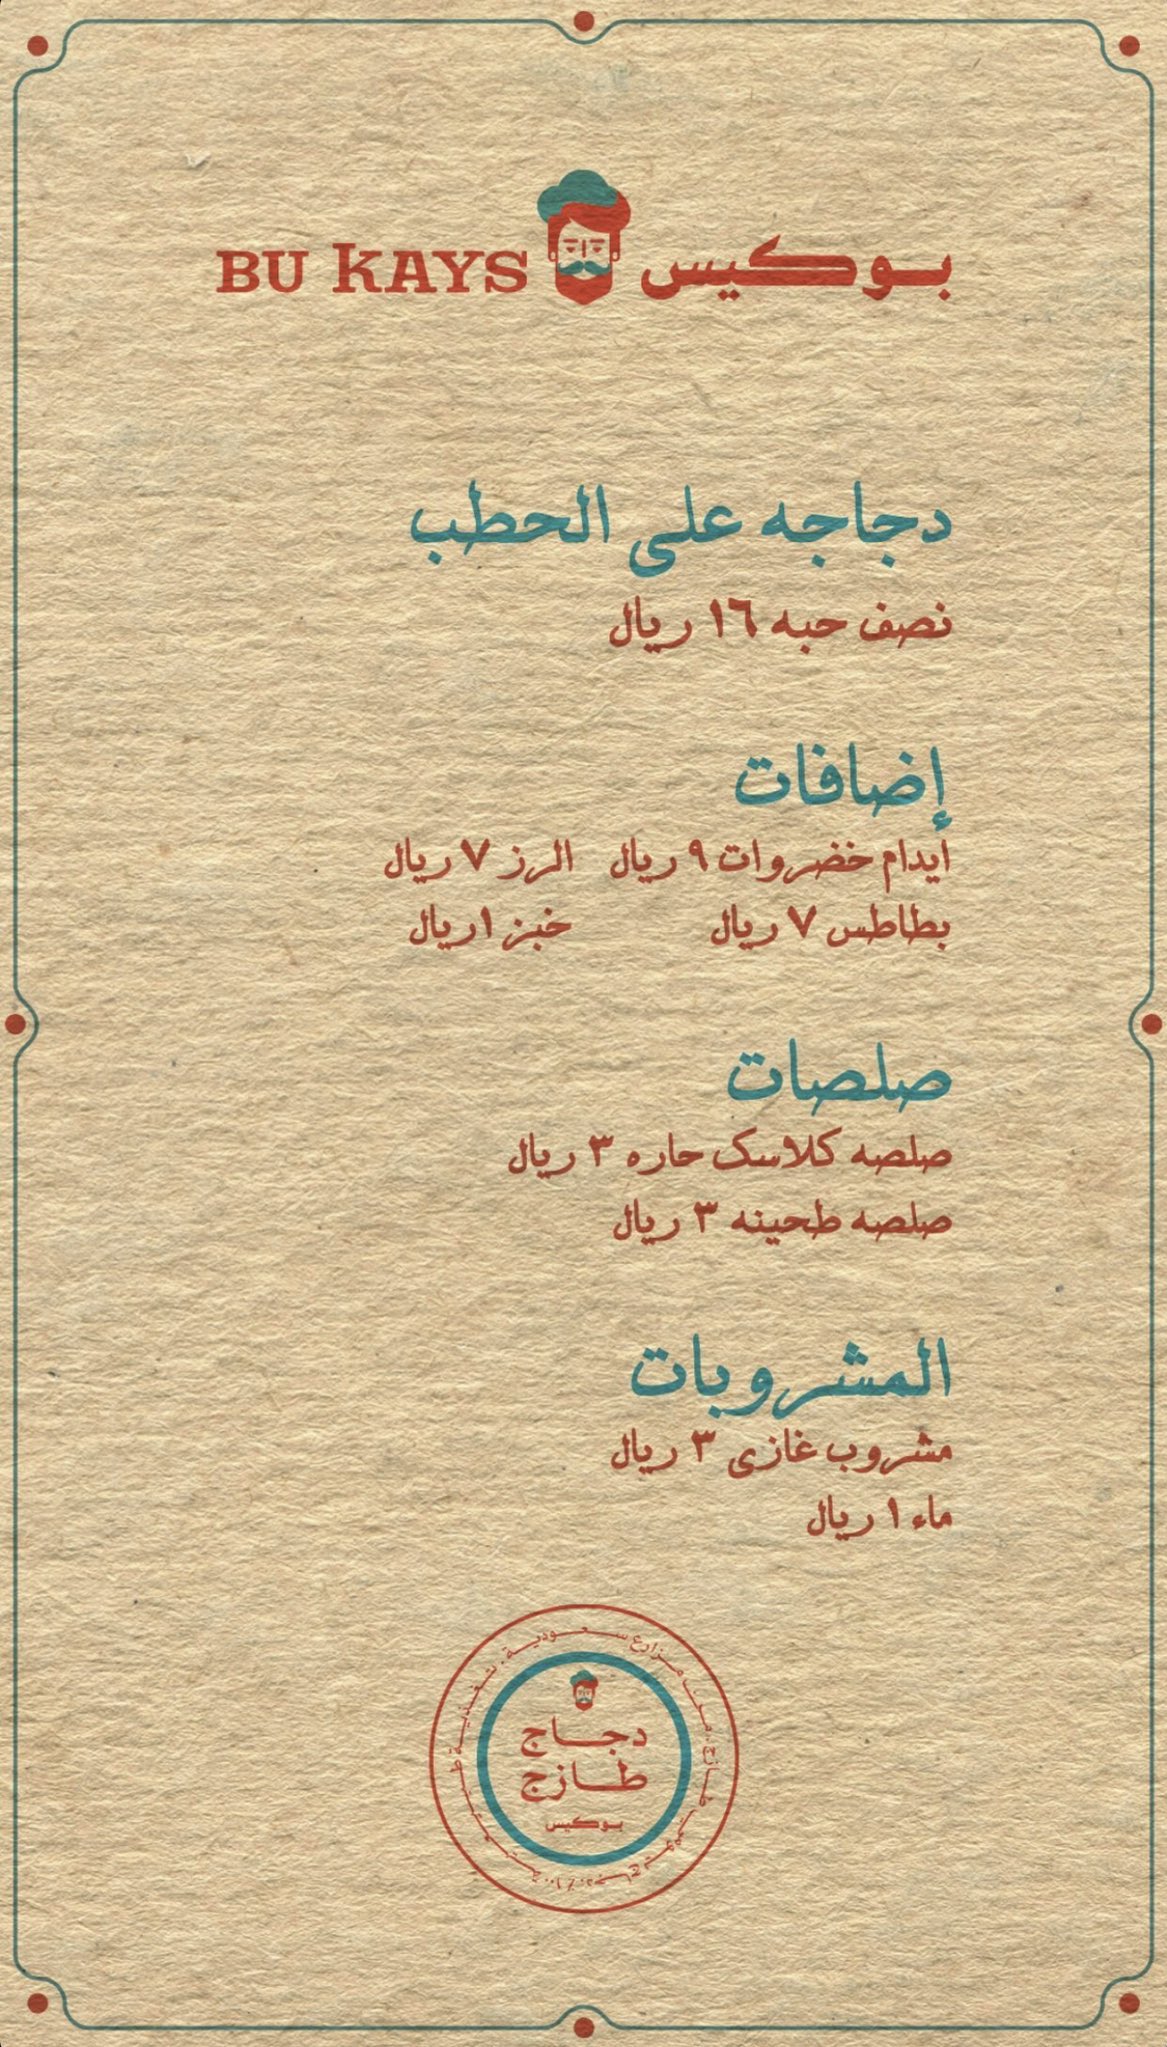 BU KAYS بوكيس
دجاجه على الحطب
نصف حبه ١٦ ريال
إضافات
ايدام خضروات ٩ ريال الرز ٧ ريال
بطاطس ٧ ريال خبز ١ ريال
صلصات
صلصه كلاسك حاره ٣ ريال
صلصه طحينه ٣ ريال
المشروبات
مشروب غازي ٣ ريال
ماء ١ ريال
دجاج
طازج
بوكيس
من مزارع سعودية